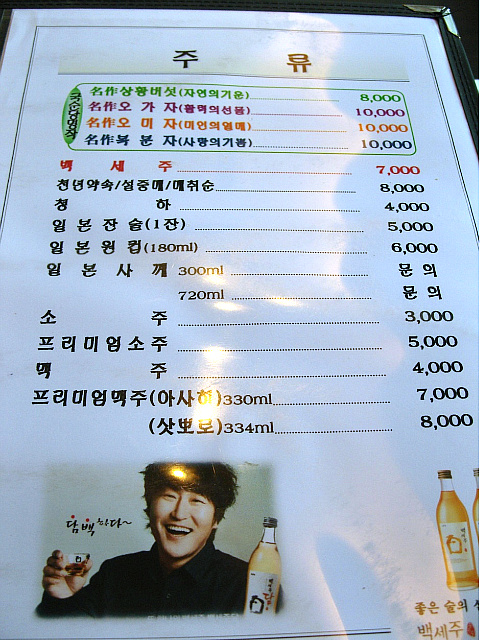 주 류
名作상황버섯(자연의기운) 8,000
名作오 가 자(활력의선물) 10,000
名作오 미 자(미인의열매) 10,000
名作복 분 자(사랑의기쁨) 10,000
백 세 주 7,000
천년약속/설중매/매취순 8,000
청 하 4,000
일본잔술(1잔) 5,000
일본원컵(180ml) 6,000
일 본 사 께 300ml 문 의
720ml 문 의
소 주 3,000
프리미엄소주 5,000
맥 주 4,000
프리미엄맥주(아사히)330ml 7,000
(삿뽀로)334ml 8,000
담백하다~
좋은 술의
백세주